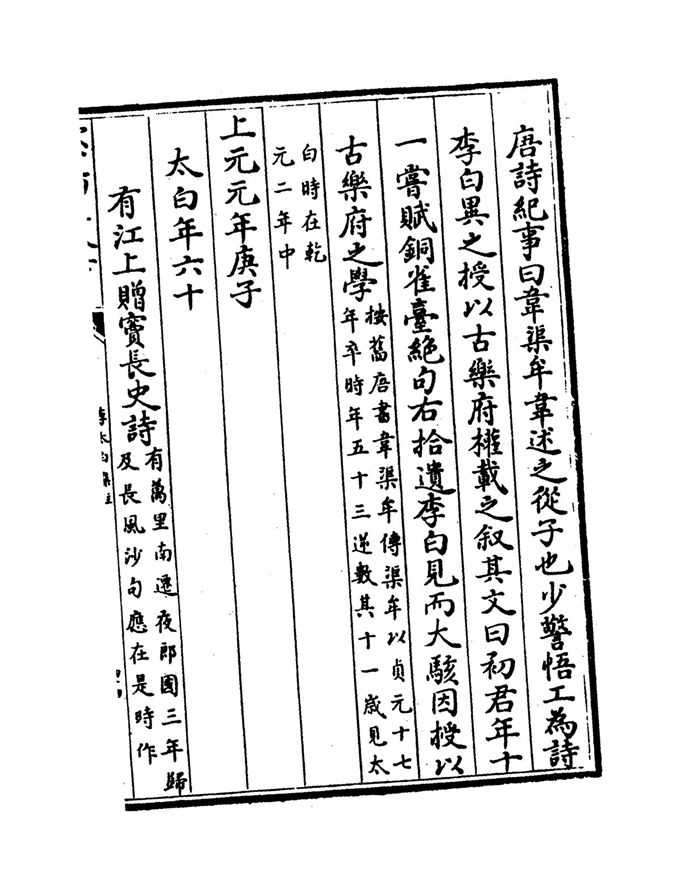 唐詩紀事曰韋渠牟韋述之從子也少警悟工為詩
李白異之授以古樂府權載之叙其文曰初君年十
一嘗賦銅雀臺絶句右拾遺李白見而大駭因授以
古樂府之學
按舊唐書韋渠牟傳渠牟以貞元十七
年卒時年五十三逆數其十一歲見太
白時在乾
元二年中
上元元年庚子
太白年六十
有江上贈竇長史詩
有萬里南遷夜郎國三年歸
及長風沙句應在是時作
李太白集注